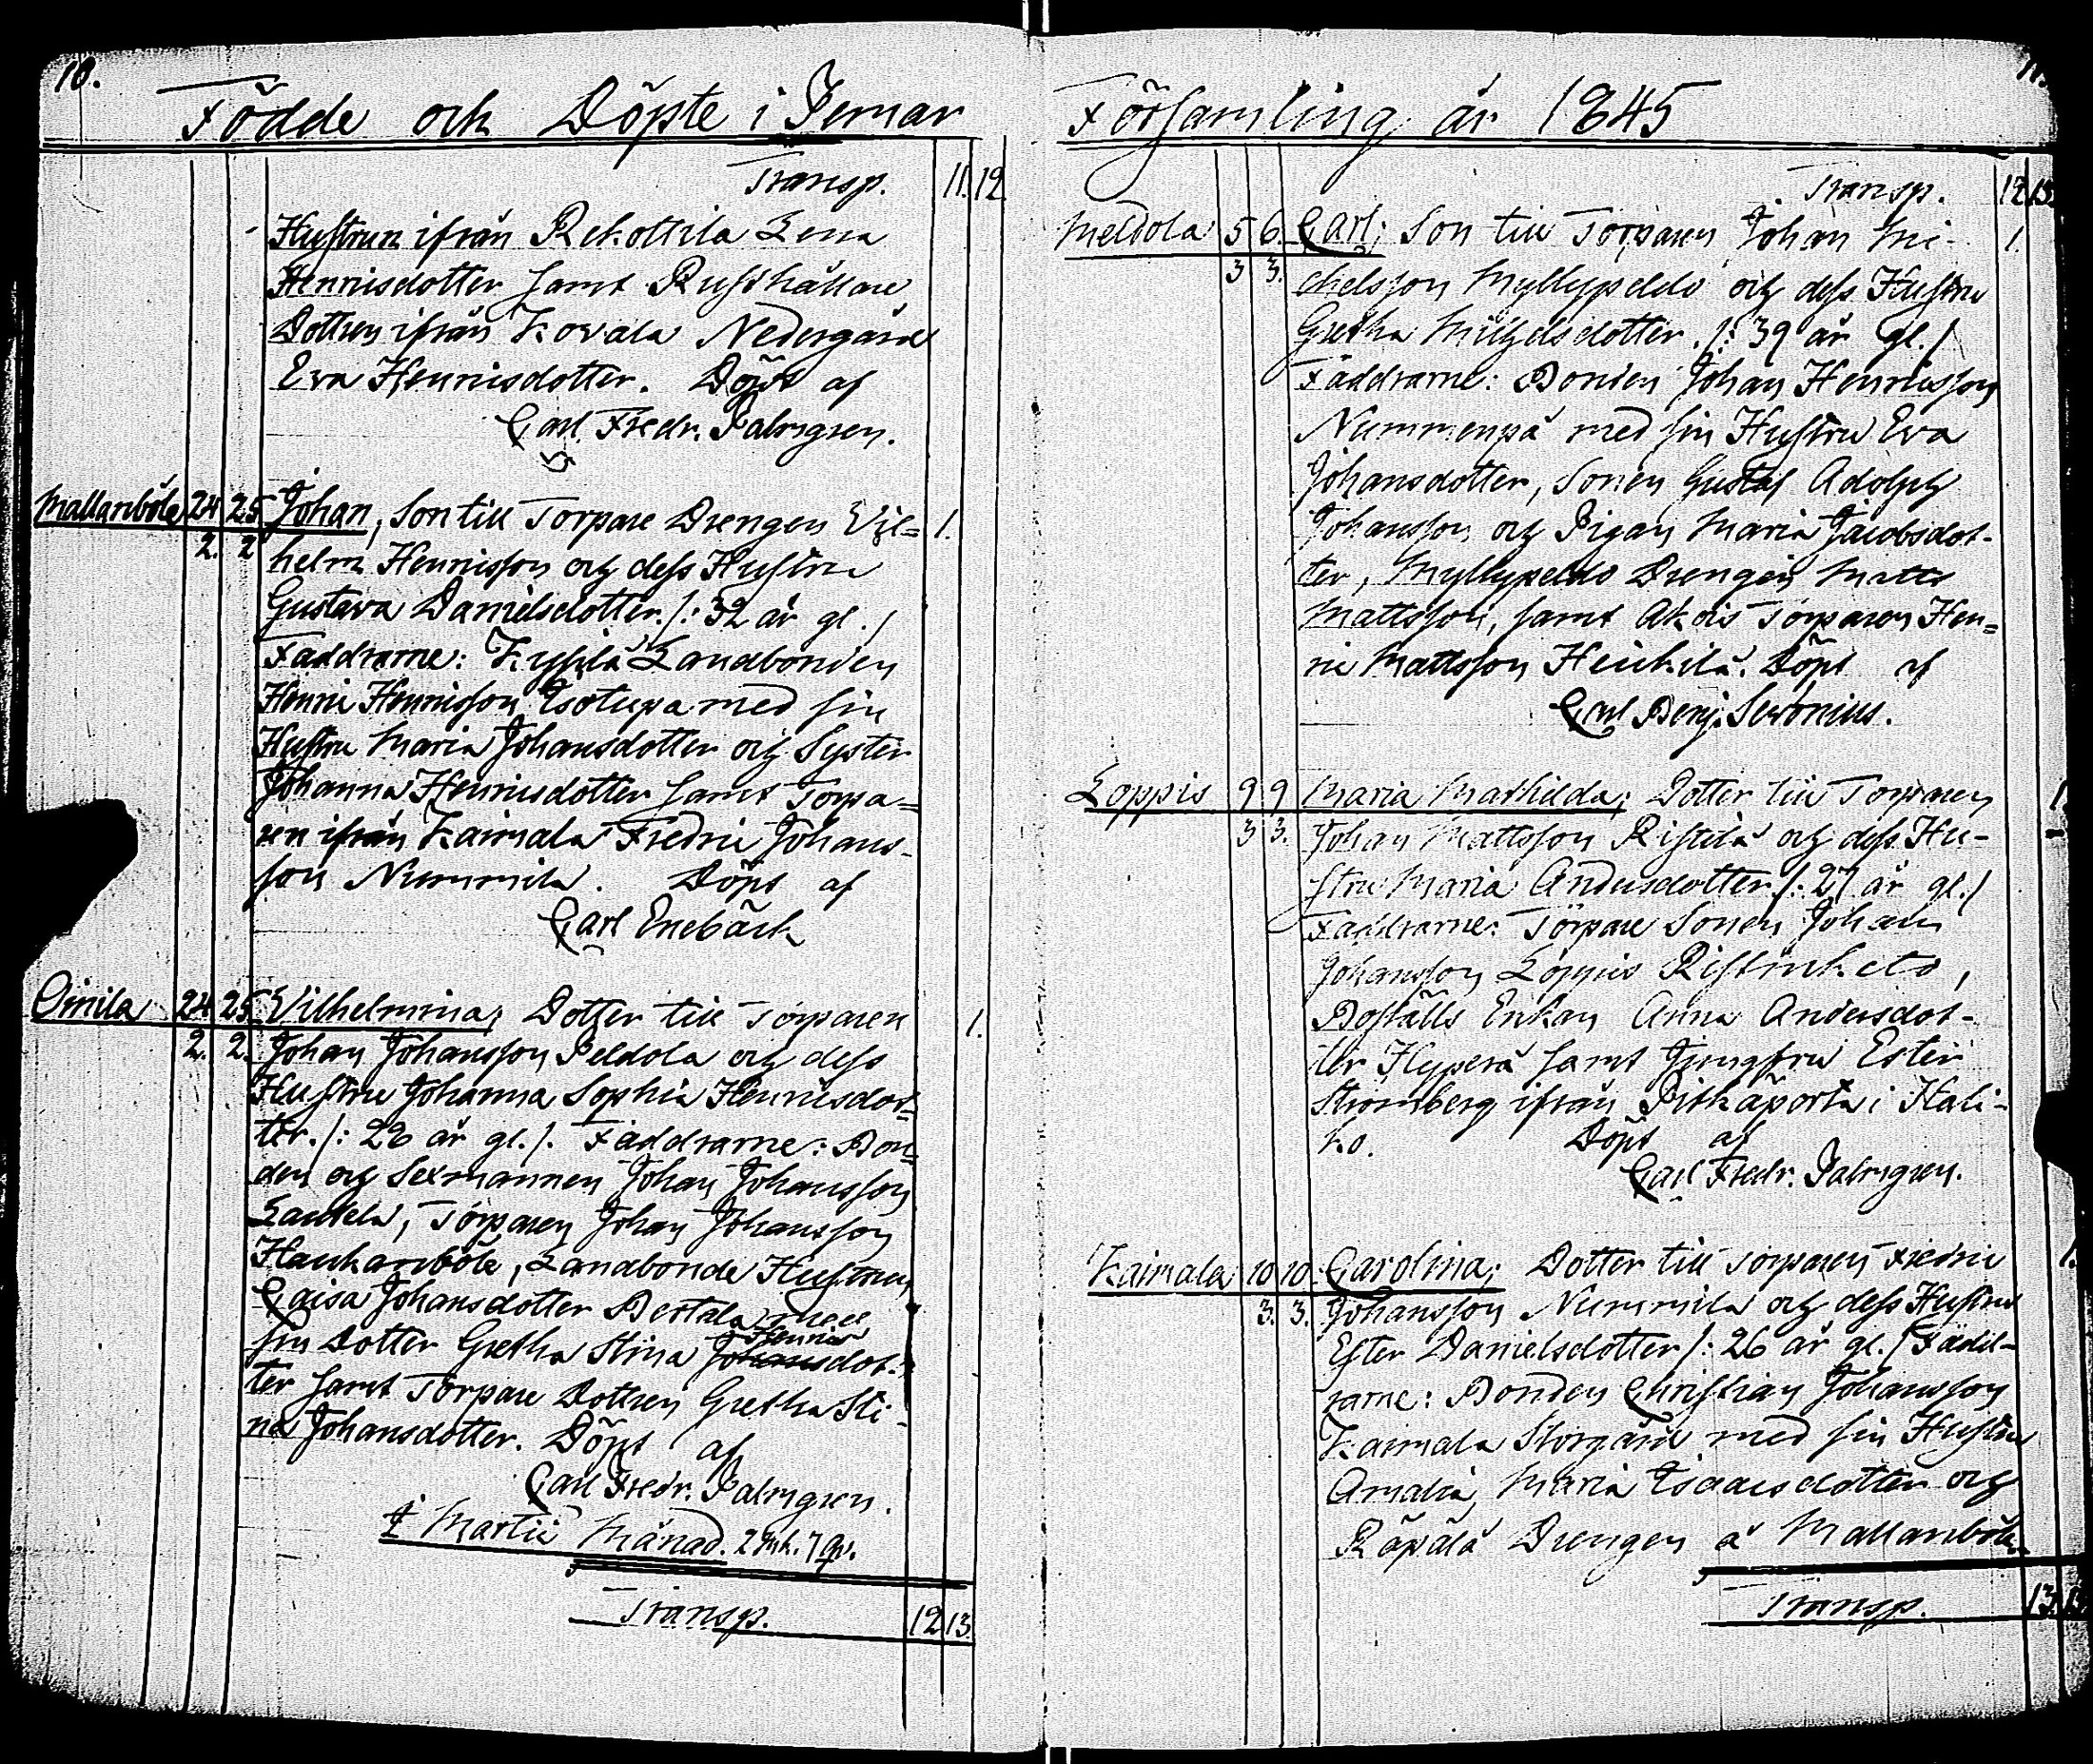 10.
Födde och Döpte i Pemar
Transp. 11. 12.
Hustrun ifrån Rekottila Lena
Henricsdotter samt Rusthållare
Dottren ifrån Kovala Nedergård
Eva Henricsdotter. Döpt af
Carl Fredr. Palmgren.
Mallanböle 24 25 Johan, Son till Torpare Drengen Vil= 1.
2. 2 helm Henricsson och dess Hustru
Gustava Danielsdotter. /: 32 år gl. /
Faddrarne: Kyhilä Landbonden
Henric Henricsson Isotupa med sin
Hustru Maria Johansdotter och Syster
Johanna Henricsdotter samt Torpa=
ren ifrån Kaimala Fredric Johans-
son Nummila. Döpt af
Carl Enebäck
Oinila 24 25 Vilhelmina; Dotter till Torparen 1.
2. 2. Johan Johansson Peldola och dess
Hustru Johanna Sophia Henricsdot=
ter. /: 28 år gl. /. Faddrarne: Bon=
den och Sexmannen Johan Johansson
Lautela, Torparen Johan Johansson
Haukanböle, Landbonde Hustrun
Caisa Johansdotter Bertala med
Henrics
sin Dotter Gretha Stina Johansdot-
ter samt Torpare Dottren Gretha Sti-
na Johansdotter. Döpt af
Carl Fredr. Palmgren.
I Martii Månad. 2 Mk. 7 Qv.
Transp. 12 13.
11.
Församling år 1845
Transp. 12 13.
Meldola 5 6 Carl; Son till Torparen Johan Mi- 1.
3 3. chelsson Myllypeldo och dess Hustru
Gretha Michelsdotter. /: 39 år gl. /
Fäddrarne: Bonden Johan Henricsson
Nummenpä med sin Hustru Eva
Johansdotter, Sonen Gustaf Adolph
Johansson och Pigan Maria Jacobsdot-
ter, Myllypeldo Drengen Matts
Mattsson, samt Akois Torparen Hen=
ric Mattsson Heickilä. Döpt af
Carl Benj. Serenius.
Loppis 9 9 Maria Mathilda; Dotter till Torparen 1.
3 3. Johan Mattsson Ristilä och dess Hu-
stru Maria Andersdotter /: 27 år gl. /
Faddrarne: Torpare Sonen Johan
Johansson Loppis
Boställs Enkan Anna Andersdot-
ter Hyperä samt Jungfru Ester
Strömberg ifrån Pitkäporta i Hali-
ko. Döpt af
Carl Fredr. Palmgren.
Kaimala 10 10. Carolina; Dotter till Torparen Fredric 1.
3. 3. Johansson Nummila och dess Hustru
Ester Danielsdotter /: 26 år gl. / Fadd-
rarne: Bonden Christian Johansson
Kaimala Storgård med sin Hustru
Amalia Maria Isaacsdotter och
Räpälä Drengen å Mallanböle
Transp. 13.